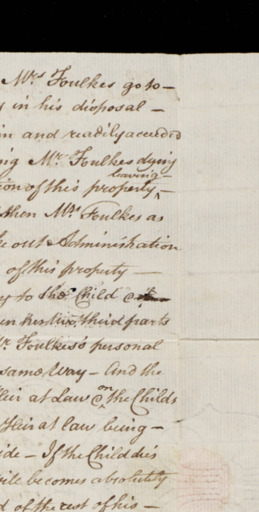 Mrs Foulkes go to —
in his disposal —
in and readily acceeded
Mr. Foulkes dying
leaving —
ion of this property —
then Mrs Foulkes as
e out Administration
of this property —
y to the Child
third parts
r. Foulkes's personal
same Way — And the
Heir at Law on the Childs
Heir at law being —
ide — If the Child dies
becomes absolutely
d of the rest of his —